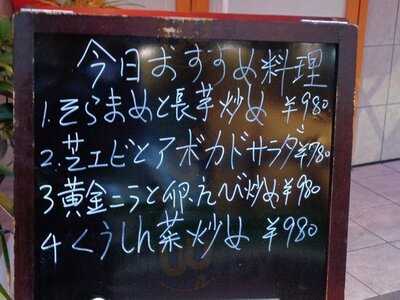 今日おすすめ料理
1.そらまめと長芋炒め ¥980
2.芝エビとアボカドサラダ ¥780
3黄金ニラと卵、えび炒め ¥980
4くうしん菜炒め ¥980